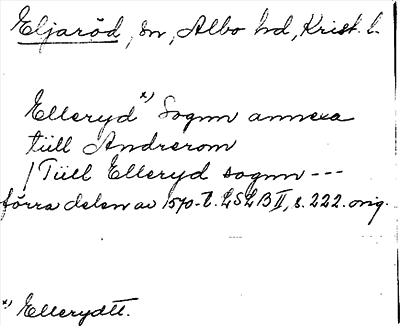 Eljaröd, sn, Albo hd, Krist. l.
Elleryd x) Sognn annexa
tiill Andrerom
/ Tiill Elleryd sognn ---
förra delen av 1570-t. LSLB II, s. 222. orig.
x) Ellerydtt.